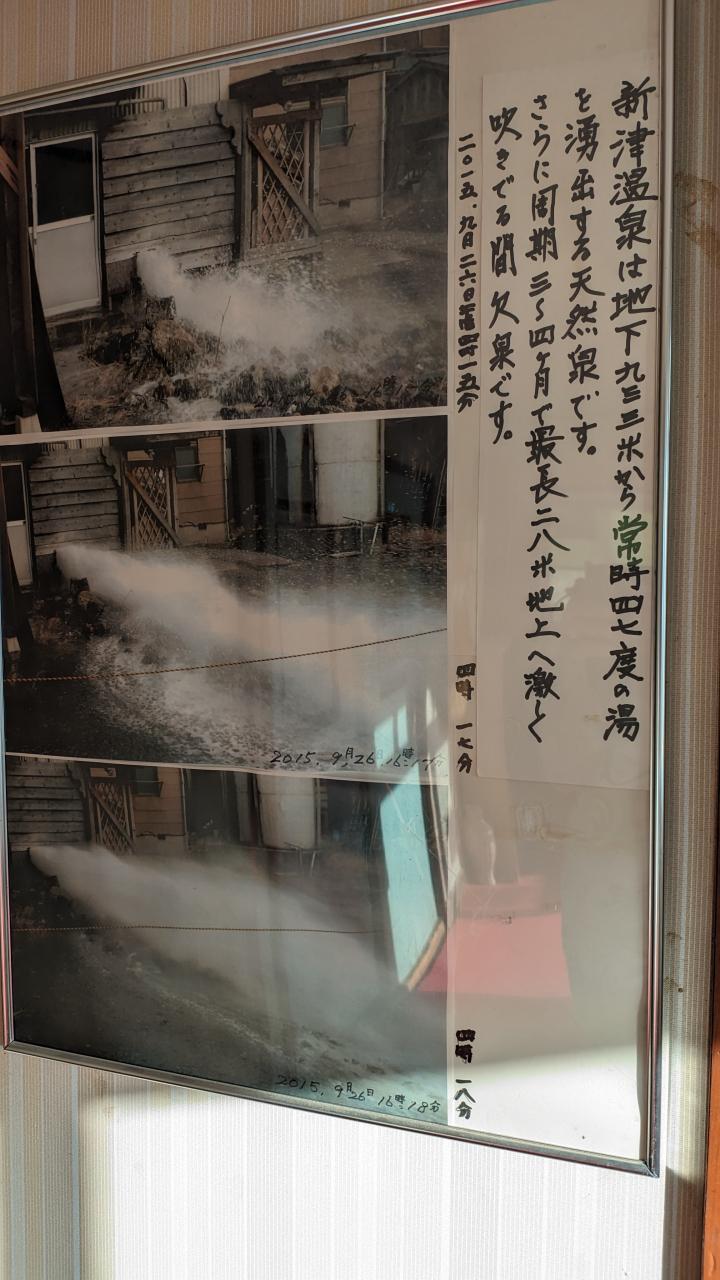 新津温泉は地下九三三米から常時四七度の湯
を湧出する天然泉です。
さらに周期三〜四ヶ月で最長二八米地上へ激しく
吹きでる間欠泉です。
二〇一五.九日二六日 四時一五分
四時 一七分
四時 一八分
2015.9月26日16時17分
2015.9月26日16時18分